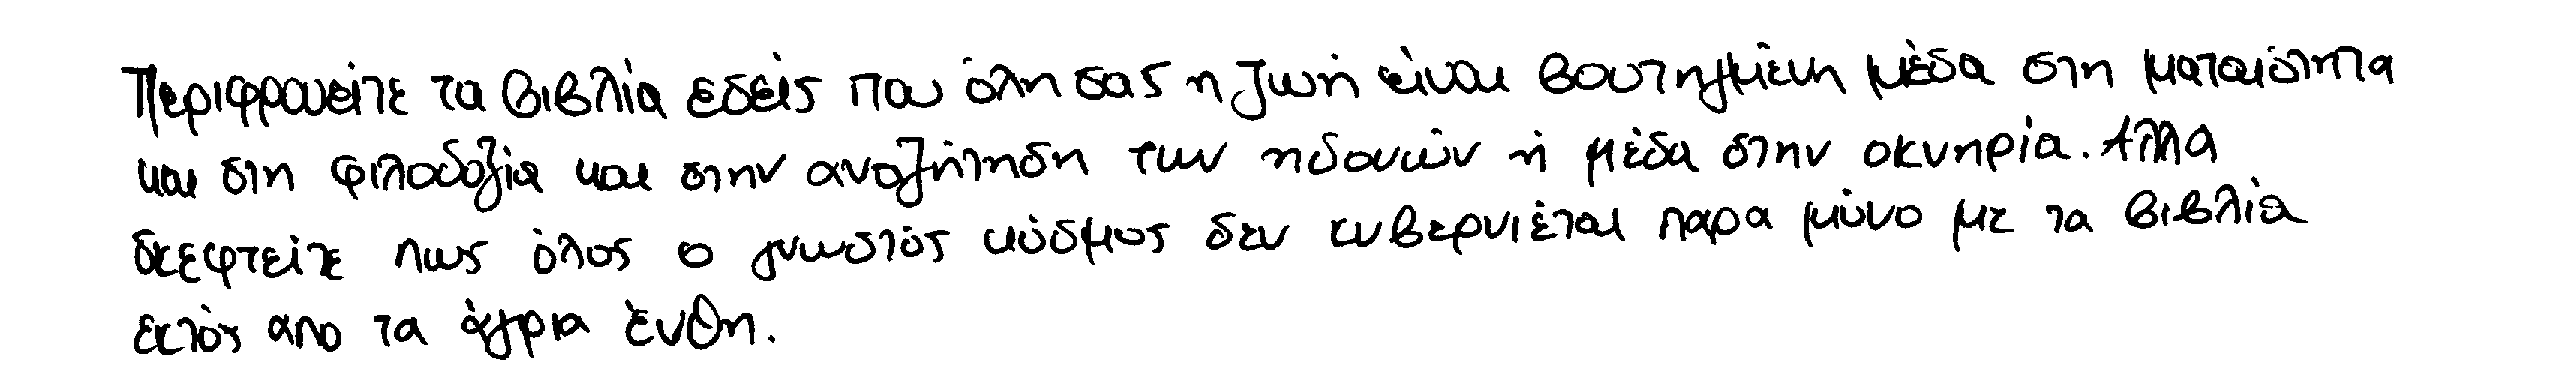 Περιφρονείτε τα βιβλία εσείς που όλη σας η ζωή είναι βουτηγμένη μέσα στη ματαιότητα
και στη φιλοδοξία και στην αναζήτηση των ηδονών ή μέσα στην οκνηρία. Αλλα
σκεφτείτε πως όλος ο γνωστός κόσμος δεν κυβερνιέται παρα μόνο με τα βιβλία
εκτός απο τα άγρια ένθη.